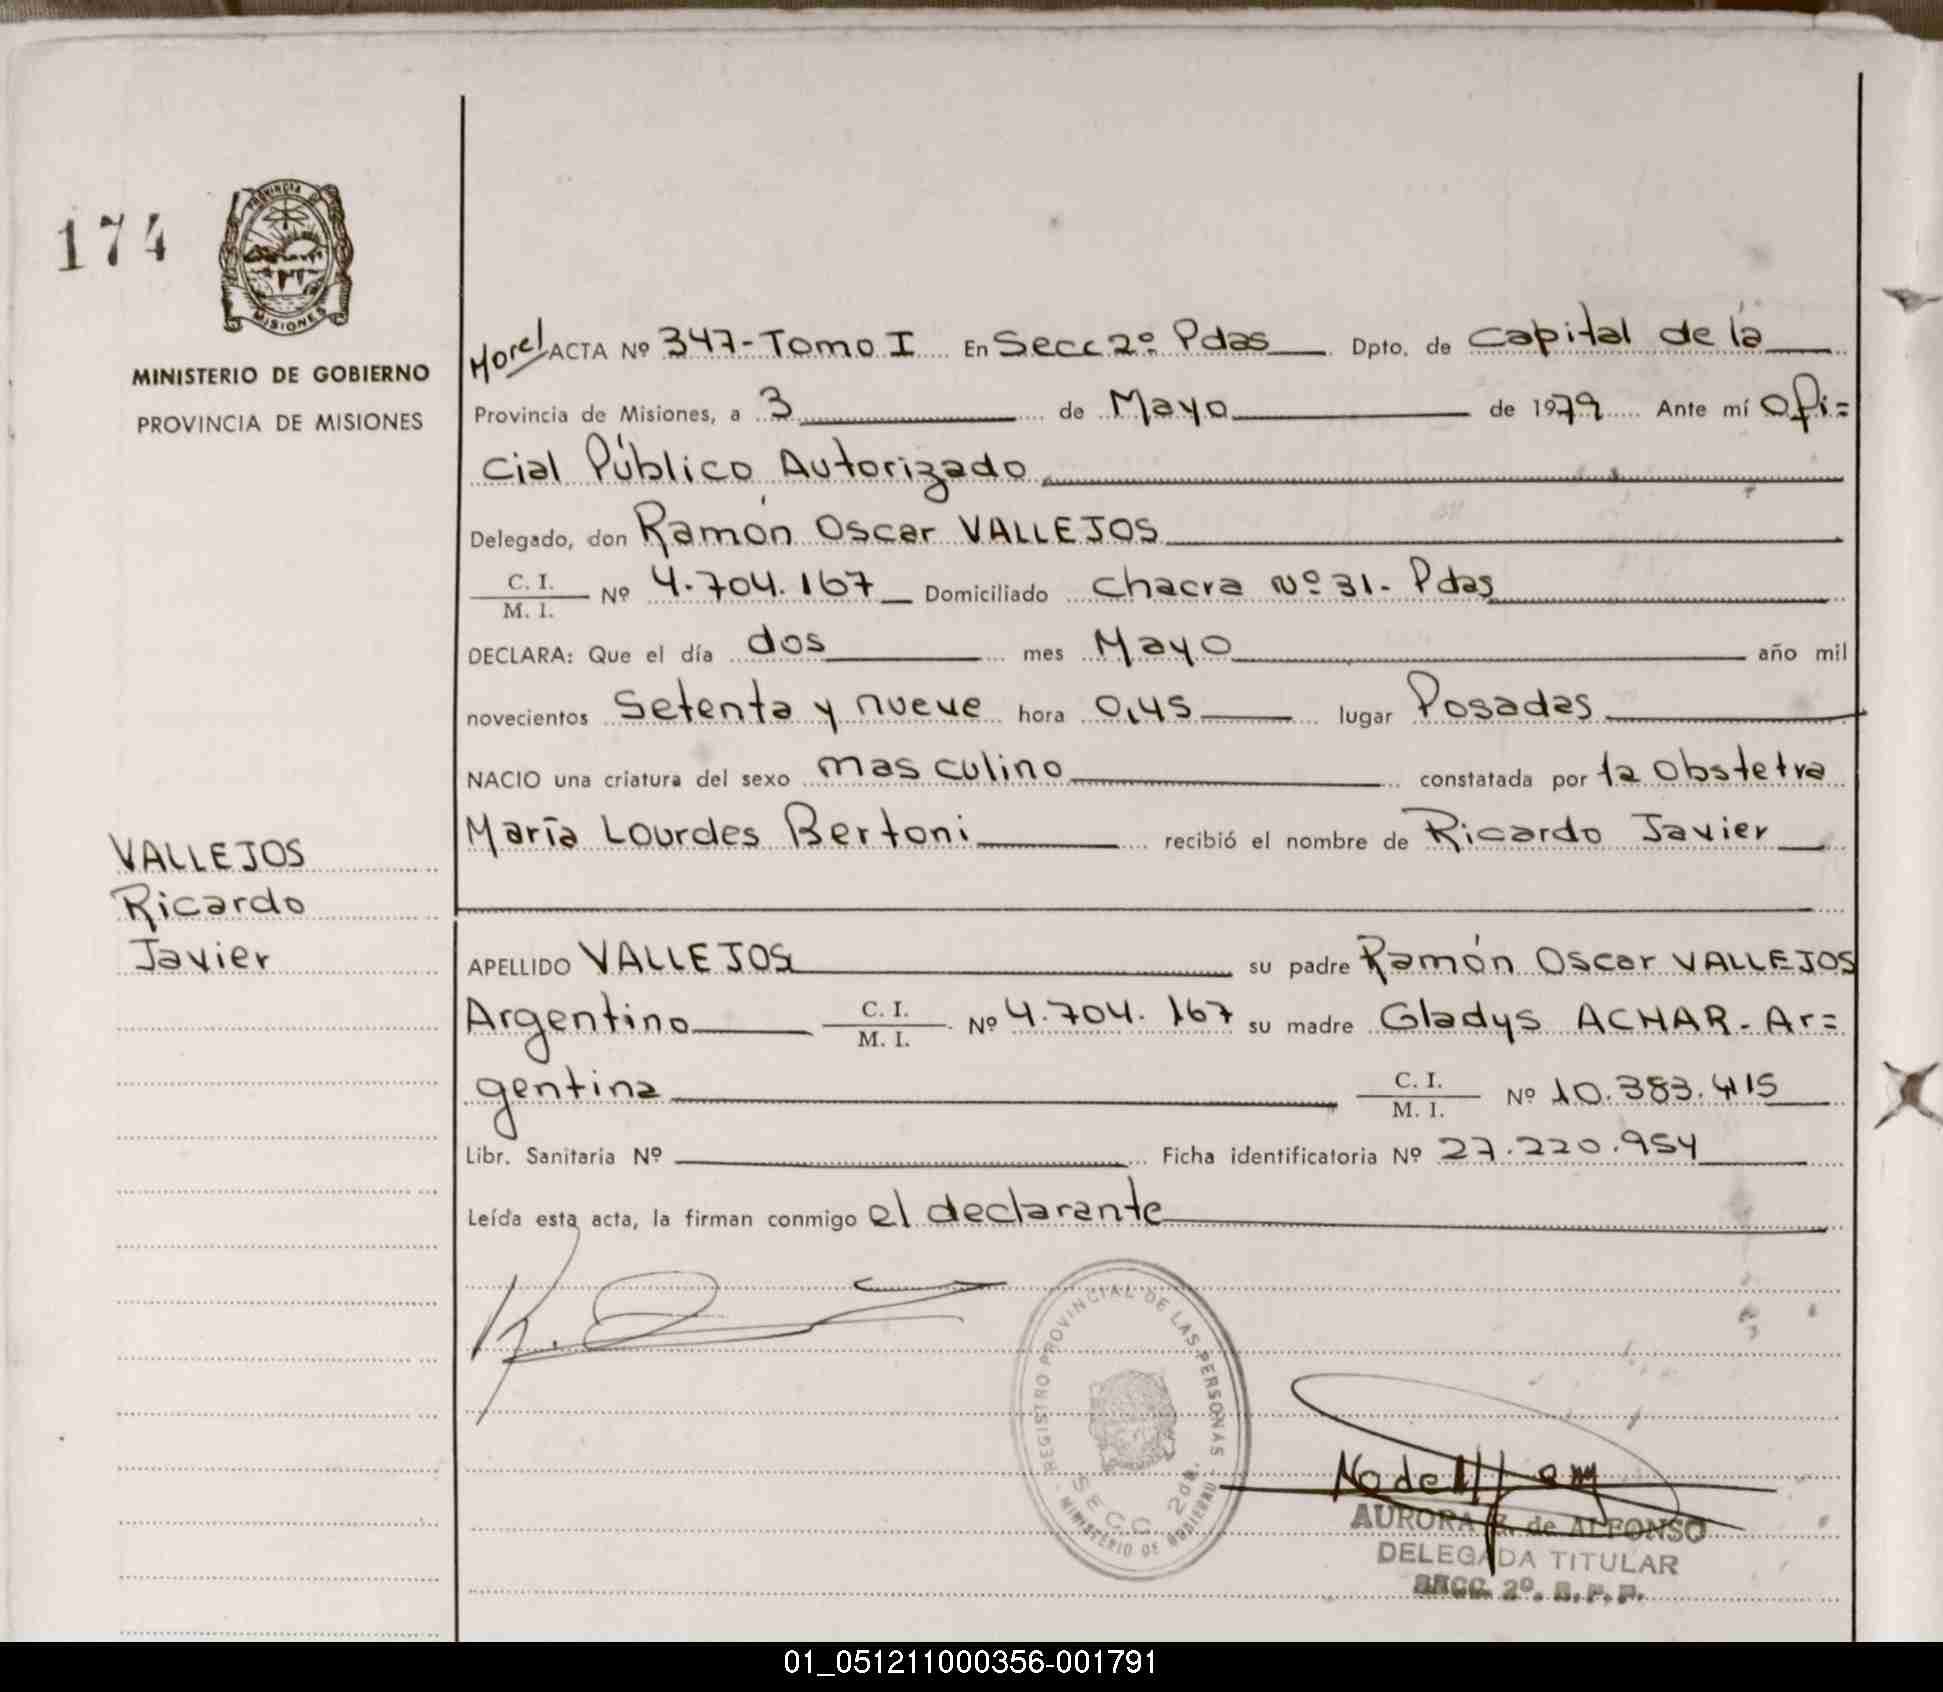 174
PROVINCIA DE
MISIONES
MINISTERIO DE GOBIERNO
PROVINCIA DE MISIONES
Morel ACTA Nº 347-Tomo I En Secc 2º Pdas Dpto. de Capital de la
Provincia de Misiones, a 3 de Mayo de 1979 Ante mí Ofi=
cial Público Autorizado
Delegado, don Ramón Oscar VALLEJOS
C. I.
M. I. Nº 4.704.167 Domiciliado Chacra Nº 31- Pdas
DECLARA: Que el día dos mes Mayo año mil
novecientos Setenta y nueve hora 0,45 lugar Posadas
NACIO una criatura del sexo masculino constatada por la Obstetra
María Lourdes Bertoni recibió el nombre de Ricardo Javier
VALLEJOS
Ricardo
Javier
APELLIDO VALLEJOS su padre Ramón Oscar VALLEJOS
Argentino C. I.
M. I. Nº 4.704.167 su madre Gladys ACHAR- Ar=
gentina C. I.
M. I. Nº 10.383.415
Libr. Sanitaria Nº Ficha identificatoria Nº 27.220.954
Leída esta acta, la firman conmigo el declarante
REGISTRO PROVINCIAL DE LAS PERSONAS
SECC. 2da.
MINISTERIO DE GOBIERNO
AURORA de ALFONSO
DELEGADA TITULAR
SECC. 2º. R. P. P.
01_051211000356-001791